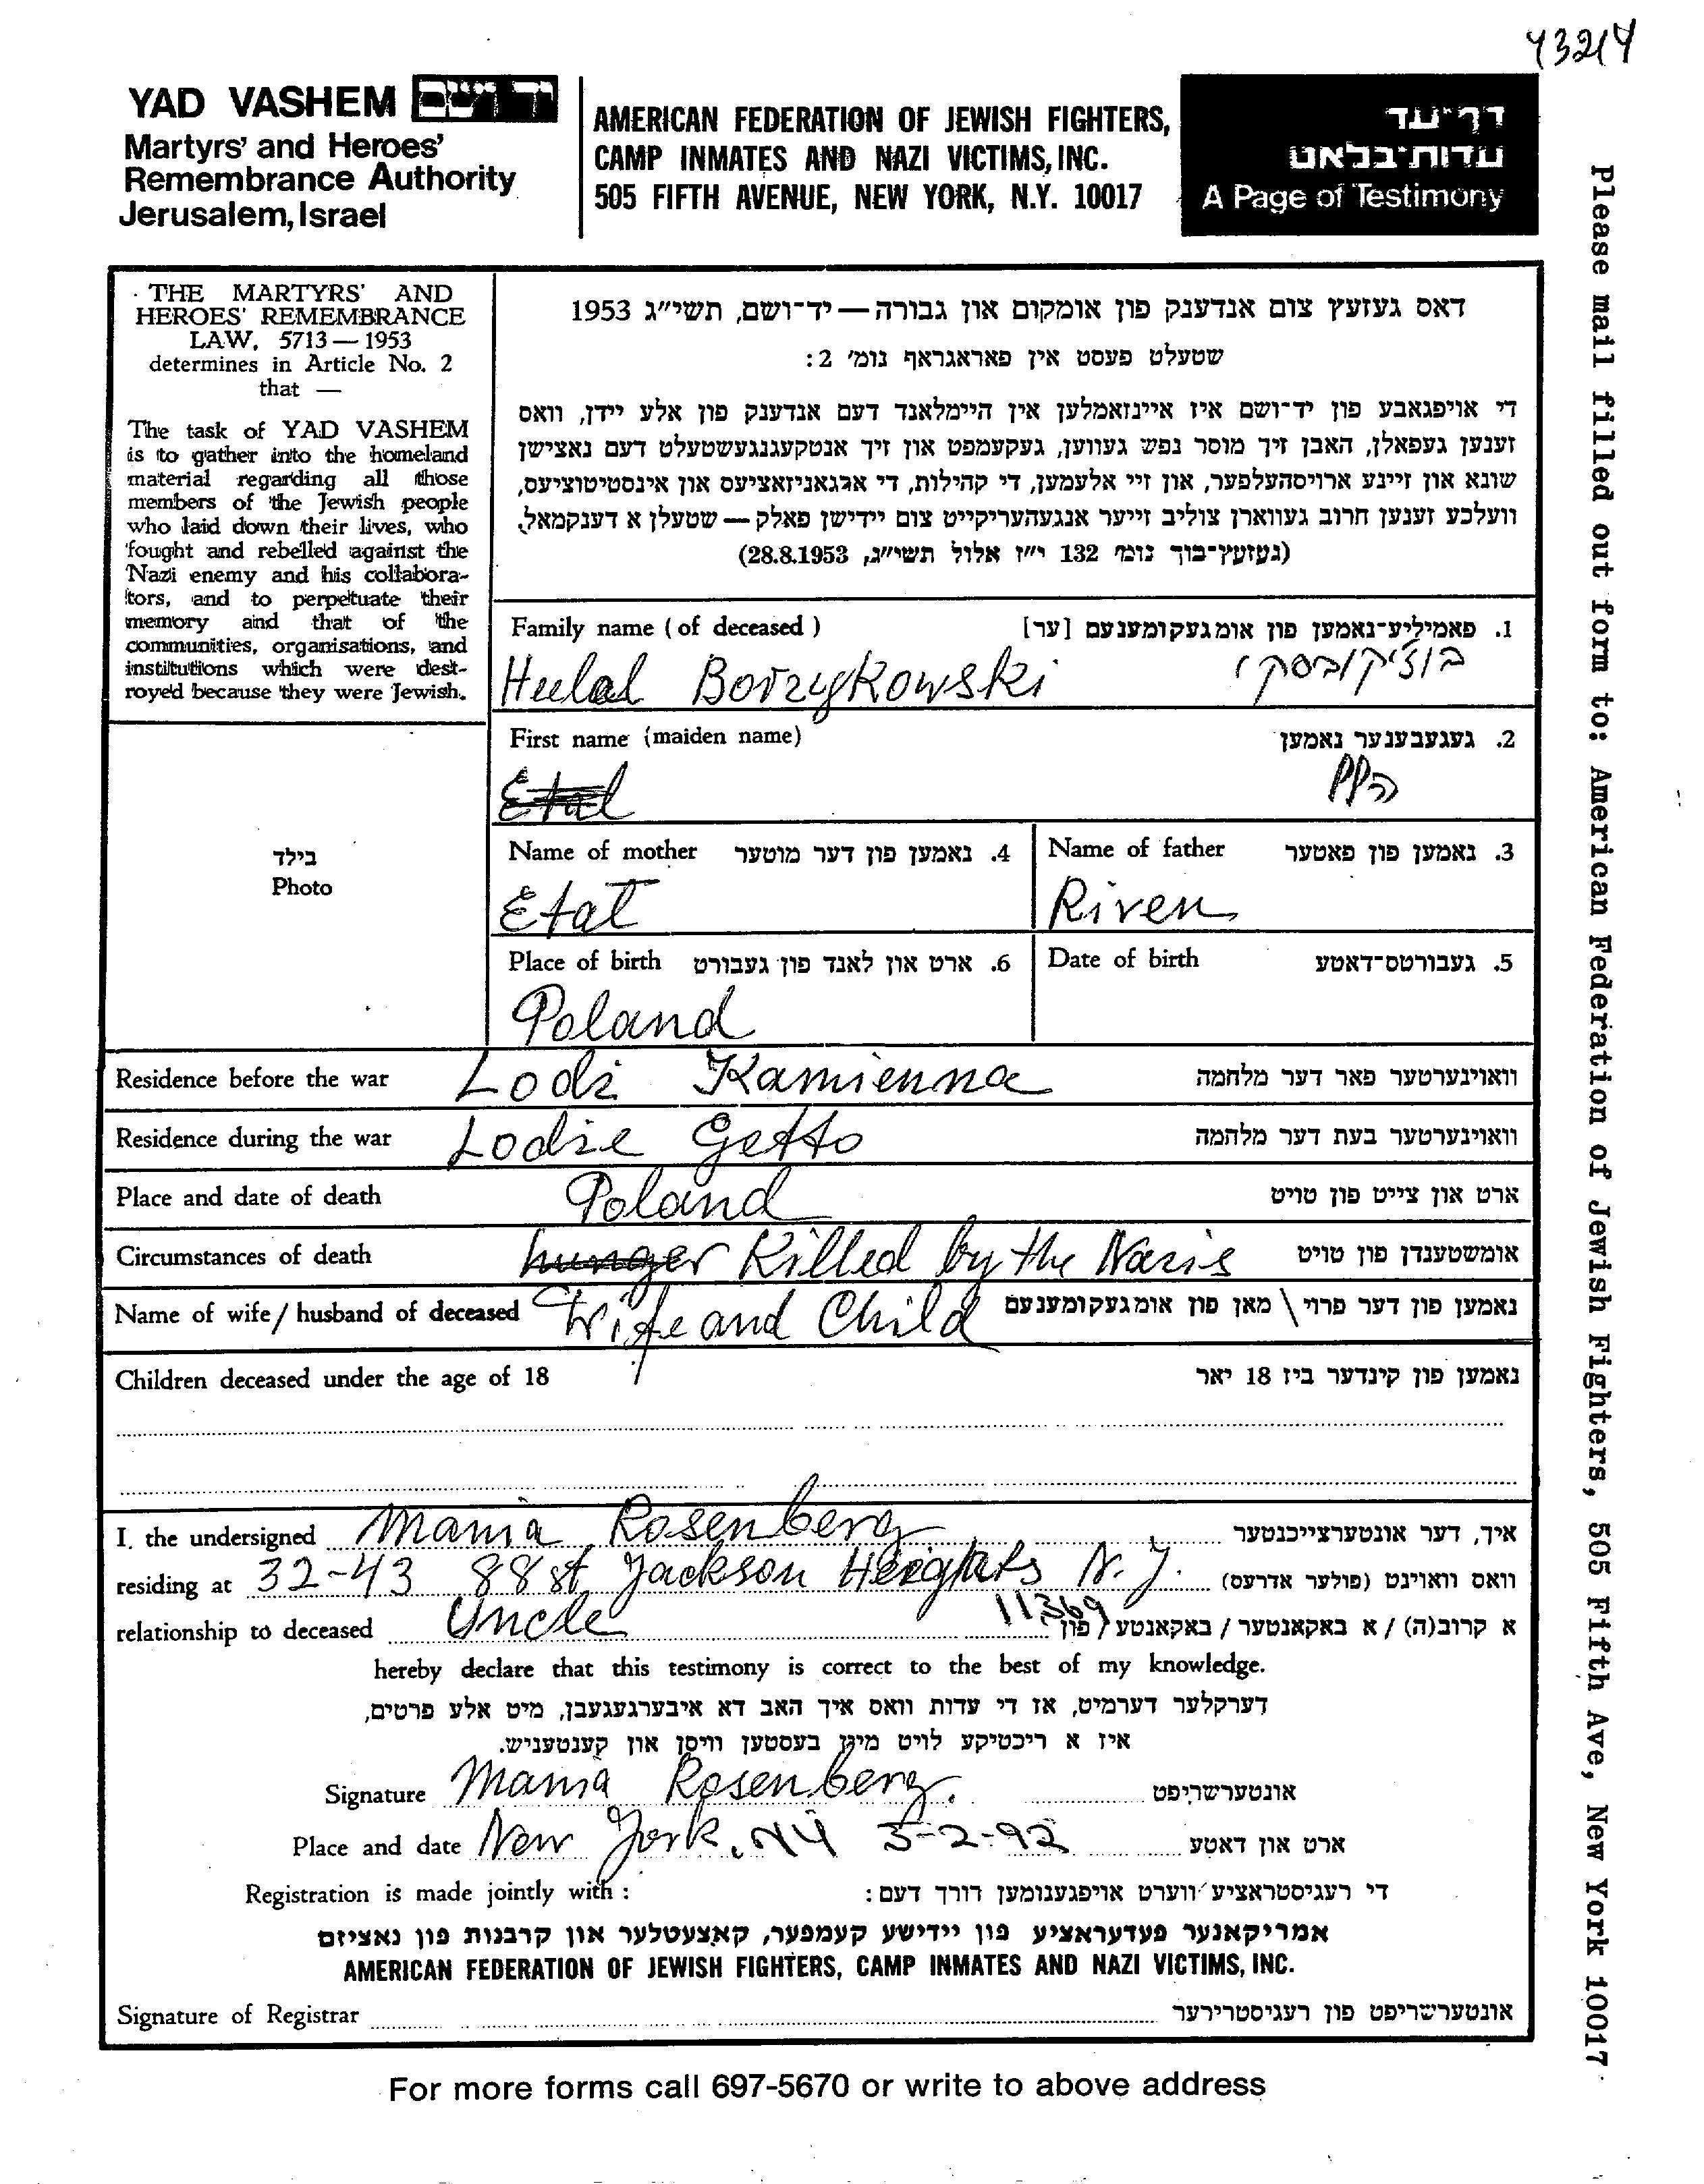 43214
YAD VASHEM יד ושם
Martyrs' and Heroes'
Remembrance Authority
Jerusalem, Israel
AMERICAN FEDERATION OF JEWISH FIGHTERS,
CAMP INMATES AND NAZI VICTIMS, INC.
505 FIFTH AVENUE, NEW YORK, N.Y. 10017
דף־עד
עדות־בלאט
A Page of Testimony
THE MARTYRS' AND
HEROES' REMEMBRANCE
LAW, 5713 — 1953
determines in Article No. 2
that —
The task of YAD VASHEM
is to gather into the homeland
material regarding all those
members of the Jewish people
who laid down their lives, who
fought and rebelled against the
Nazi enemy and his collabora-
tors, and to perpetuate their
memory and that of the
communities, organisations, and
institutions which were dest-
royed because they were Jewish.
דאס געזעץ צום אנדענק פון אומקום און גבורה — יד־ושם, תשי״ג 1953
שטעלט פעסט אין פאראגראף נומ׳ 2:
די אויפגאבע פון יד־ושם איז איינזאמלען אין היימלאנד דעם אנדענק פון אלע יידן, וואס
זענען געפאלן, האבן זיך מוסר נפש געווען, געקעמפט און זיך אנטקעגנגעשטעלט דעם נאצישן
שונא און זיינע ארויסהעלפער, און זיי אלעמען, די קהילות, די ארגאניזאציעס און אינסטיטוציעס,
וועלכע זענען חרוב געווארן צוליב זייער אנגעהעריקייט צום יידישן פאלק — שטעלן א דענקמאל.
(געזעץ־בוך נומ׳ 132 י״ז אלול תשי״ג, 28.8.1953)
Family name (of deceased) 1. פאמיליע־נאמען פון אומגעקומענעם [ער]
Heelal Borzykowski בוז׳יקובסקי
First name (maiden name) 2. געגעבענער נאמען
Etal
בילד
Photo
Name of mother 4. נאמען פון דער מוטער Name of father 3. נאמען פון פאטער
Etat Riven
Place of birth 6. ארט און לאנד פון געבורט Date of birth 5. געבורטס־דאטע
Poland
Residence before the war Lodz Kamienna וואוינערטער פאר דער מלחמה
Residence during the war Lodzie Getto וואוינערטער בעת דער מלחמה
Place and date of death Poland ארט און צייט פון טויט
Circumstances of death hunger Killed by the Nazis אומשטענדן פון טויט
Name of wife / husband of deceased Wife and Child נאמען פון דער פרוי \ מאן פון אומגעקומענעם
Children deceased under the age of 18 נאמען פון קינדער ביז 18 יאר
I. the undersigned Mania Rosenberg איך, דער אונטערצייכנטער
residing at 32-43 88 st, Jackson Heights N.Y. וואס וואוינט (פולער אדרעס)
11369
relationship to deceased Uncle א קרוב(ה) / א באקאנטער / באקאנטע פון
hereby declare that this testimony is correct to the best of my knowledge.
דערקלער דערמיט, אז די עדות וואס איך האב דא איבערגעגעבן, מיט אלע פרטים,
איז א ריכטיקע לויט מיין בעסטען וויסן און קענטעניש.
Signature Mania Rosenberg. אונטערשריפט
Place and date New York, NY 3-2-92 ארט און דאטע
Registration is made jointly with : די רעגיסטראציע ווערט אויפגענומען דורך דעם :
אמריקאנער פעדעראציע פון יידישע קעמפער, קאצעטלער און קרבנות פון נאציזם
AMERICAN FEDERATION OF JEWISH FIGHTERS, CAMP INMATES AND NAZI VICTIMS, INC.
Signature of Registrar אונטערשריפט פון רעגיסטרירער
For more forms call 697-5670 or write to above address
Please mail filled out form to: American Federation of Jewish Fighters, 505 Fifth Ave, New York 10017